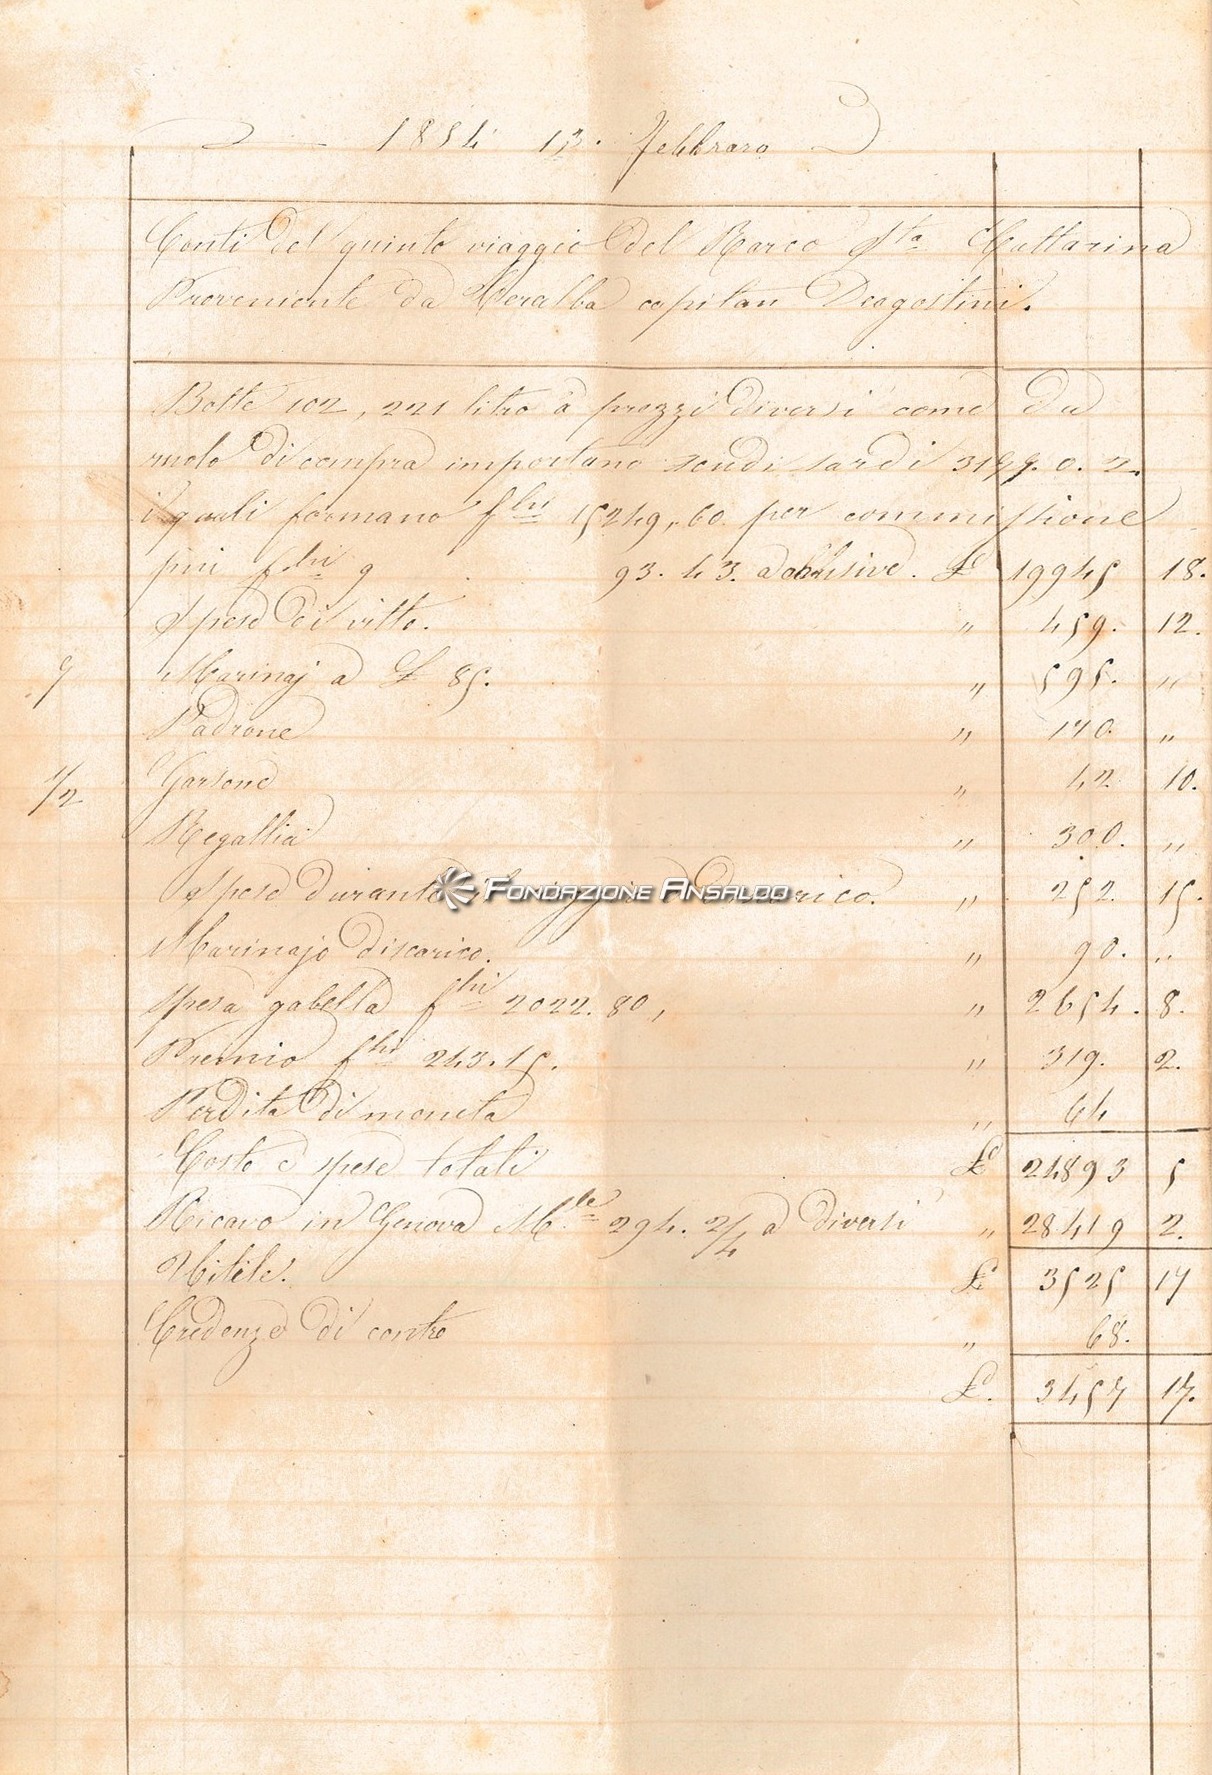 1854 13. Febbraro
Conti del quinto viaggio del Barco Sta Cattarina
Proveniente da Ceralba capitan Deagostini.
Botte 102, 221 litro a prezzi diversi come da
ruolo di compra importano scudi sardi 3177. 0. 2.
i quali formano fchi 15249,,60 per commissione
più fchi 9 93. 43. £ 19945 18.
Spese di vitto. " 459. 12.
7 Marinaj a £ 85. " 595. "
Padrone " 170. "
1/2 Garsone " 42 10.
Regallia " 300. "
Spese durante il viaggio e discarico. " 252. 15.
FONDAZIONE ANSALDO
Marinajo discarico. " 90. "
Spesa gabella fchi 2022. 80, " 2654. 8.
Premio fchi 243. 15. " 319. 2.
Perdita di moneta " 64
Costo e spese totali £ 24893 5
Ricavo in Genova M.le 294. 2/4 a diversi " 28419 2.
Utile. £ 3525 17
Credenze di contro " 68.
£. 3457 17.